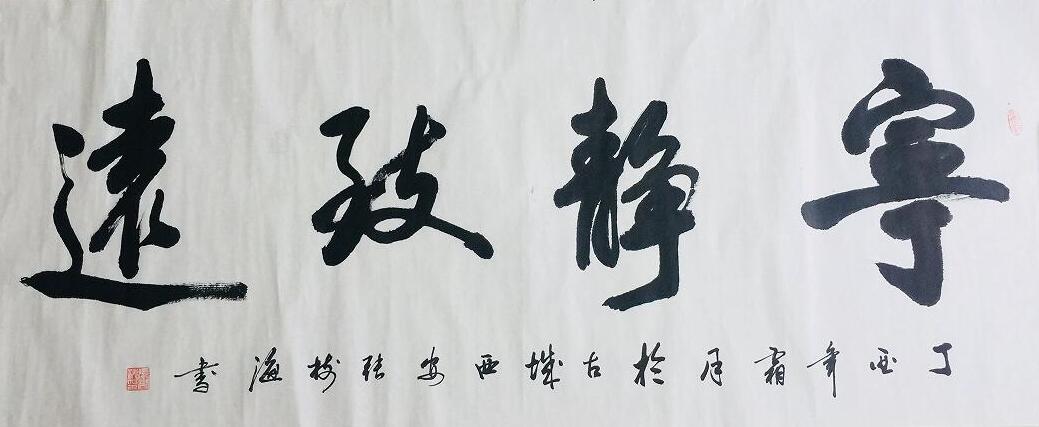 寧静致遠
丁酉年霜月於古城西安張樹海書